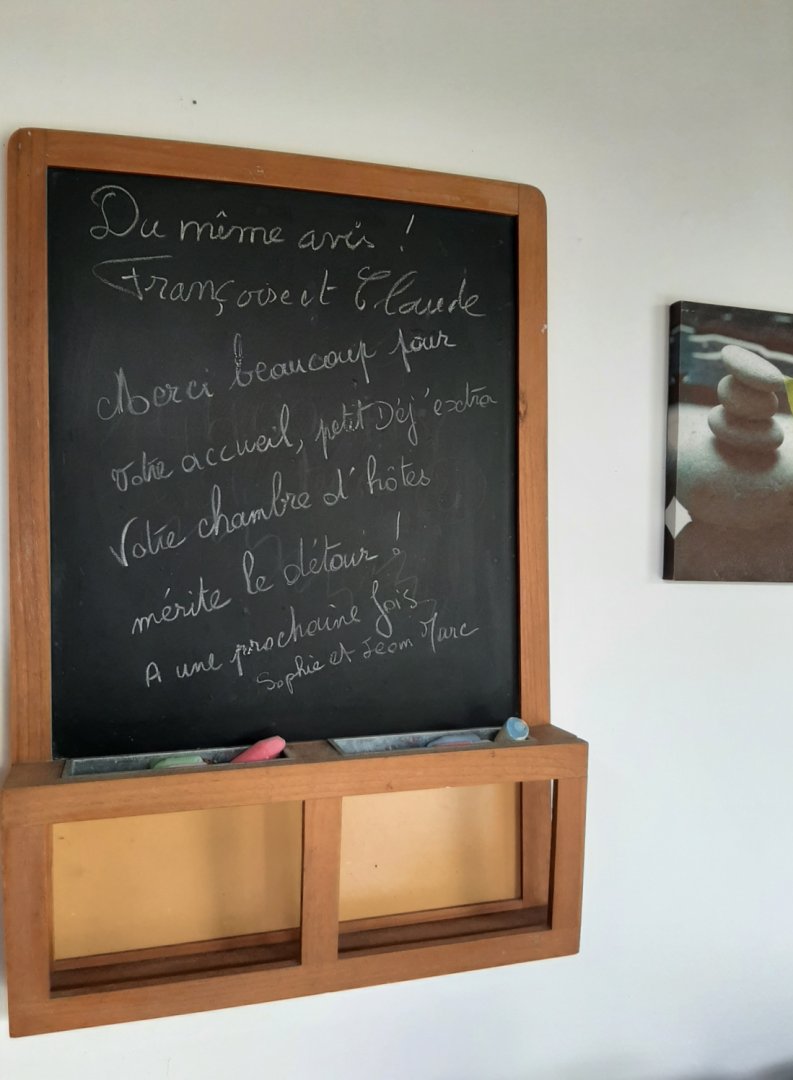 Du même avis !
Françoise et Claude
Merci beaucoup pour
votre accueil, petit Déj' extra
Votre chambre d'hôtes
mérite le détour !
A une prochaine fois
Sophie et Jean Marc